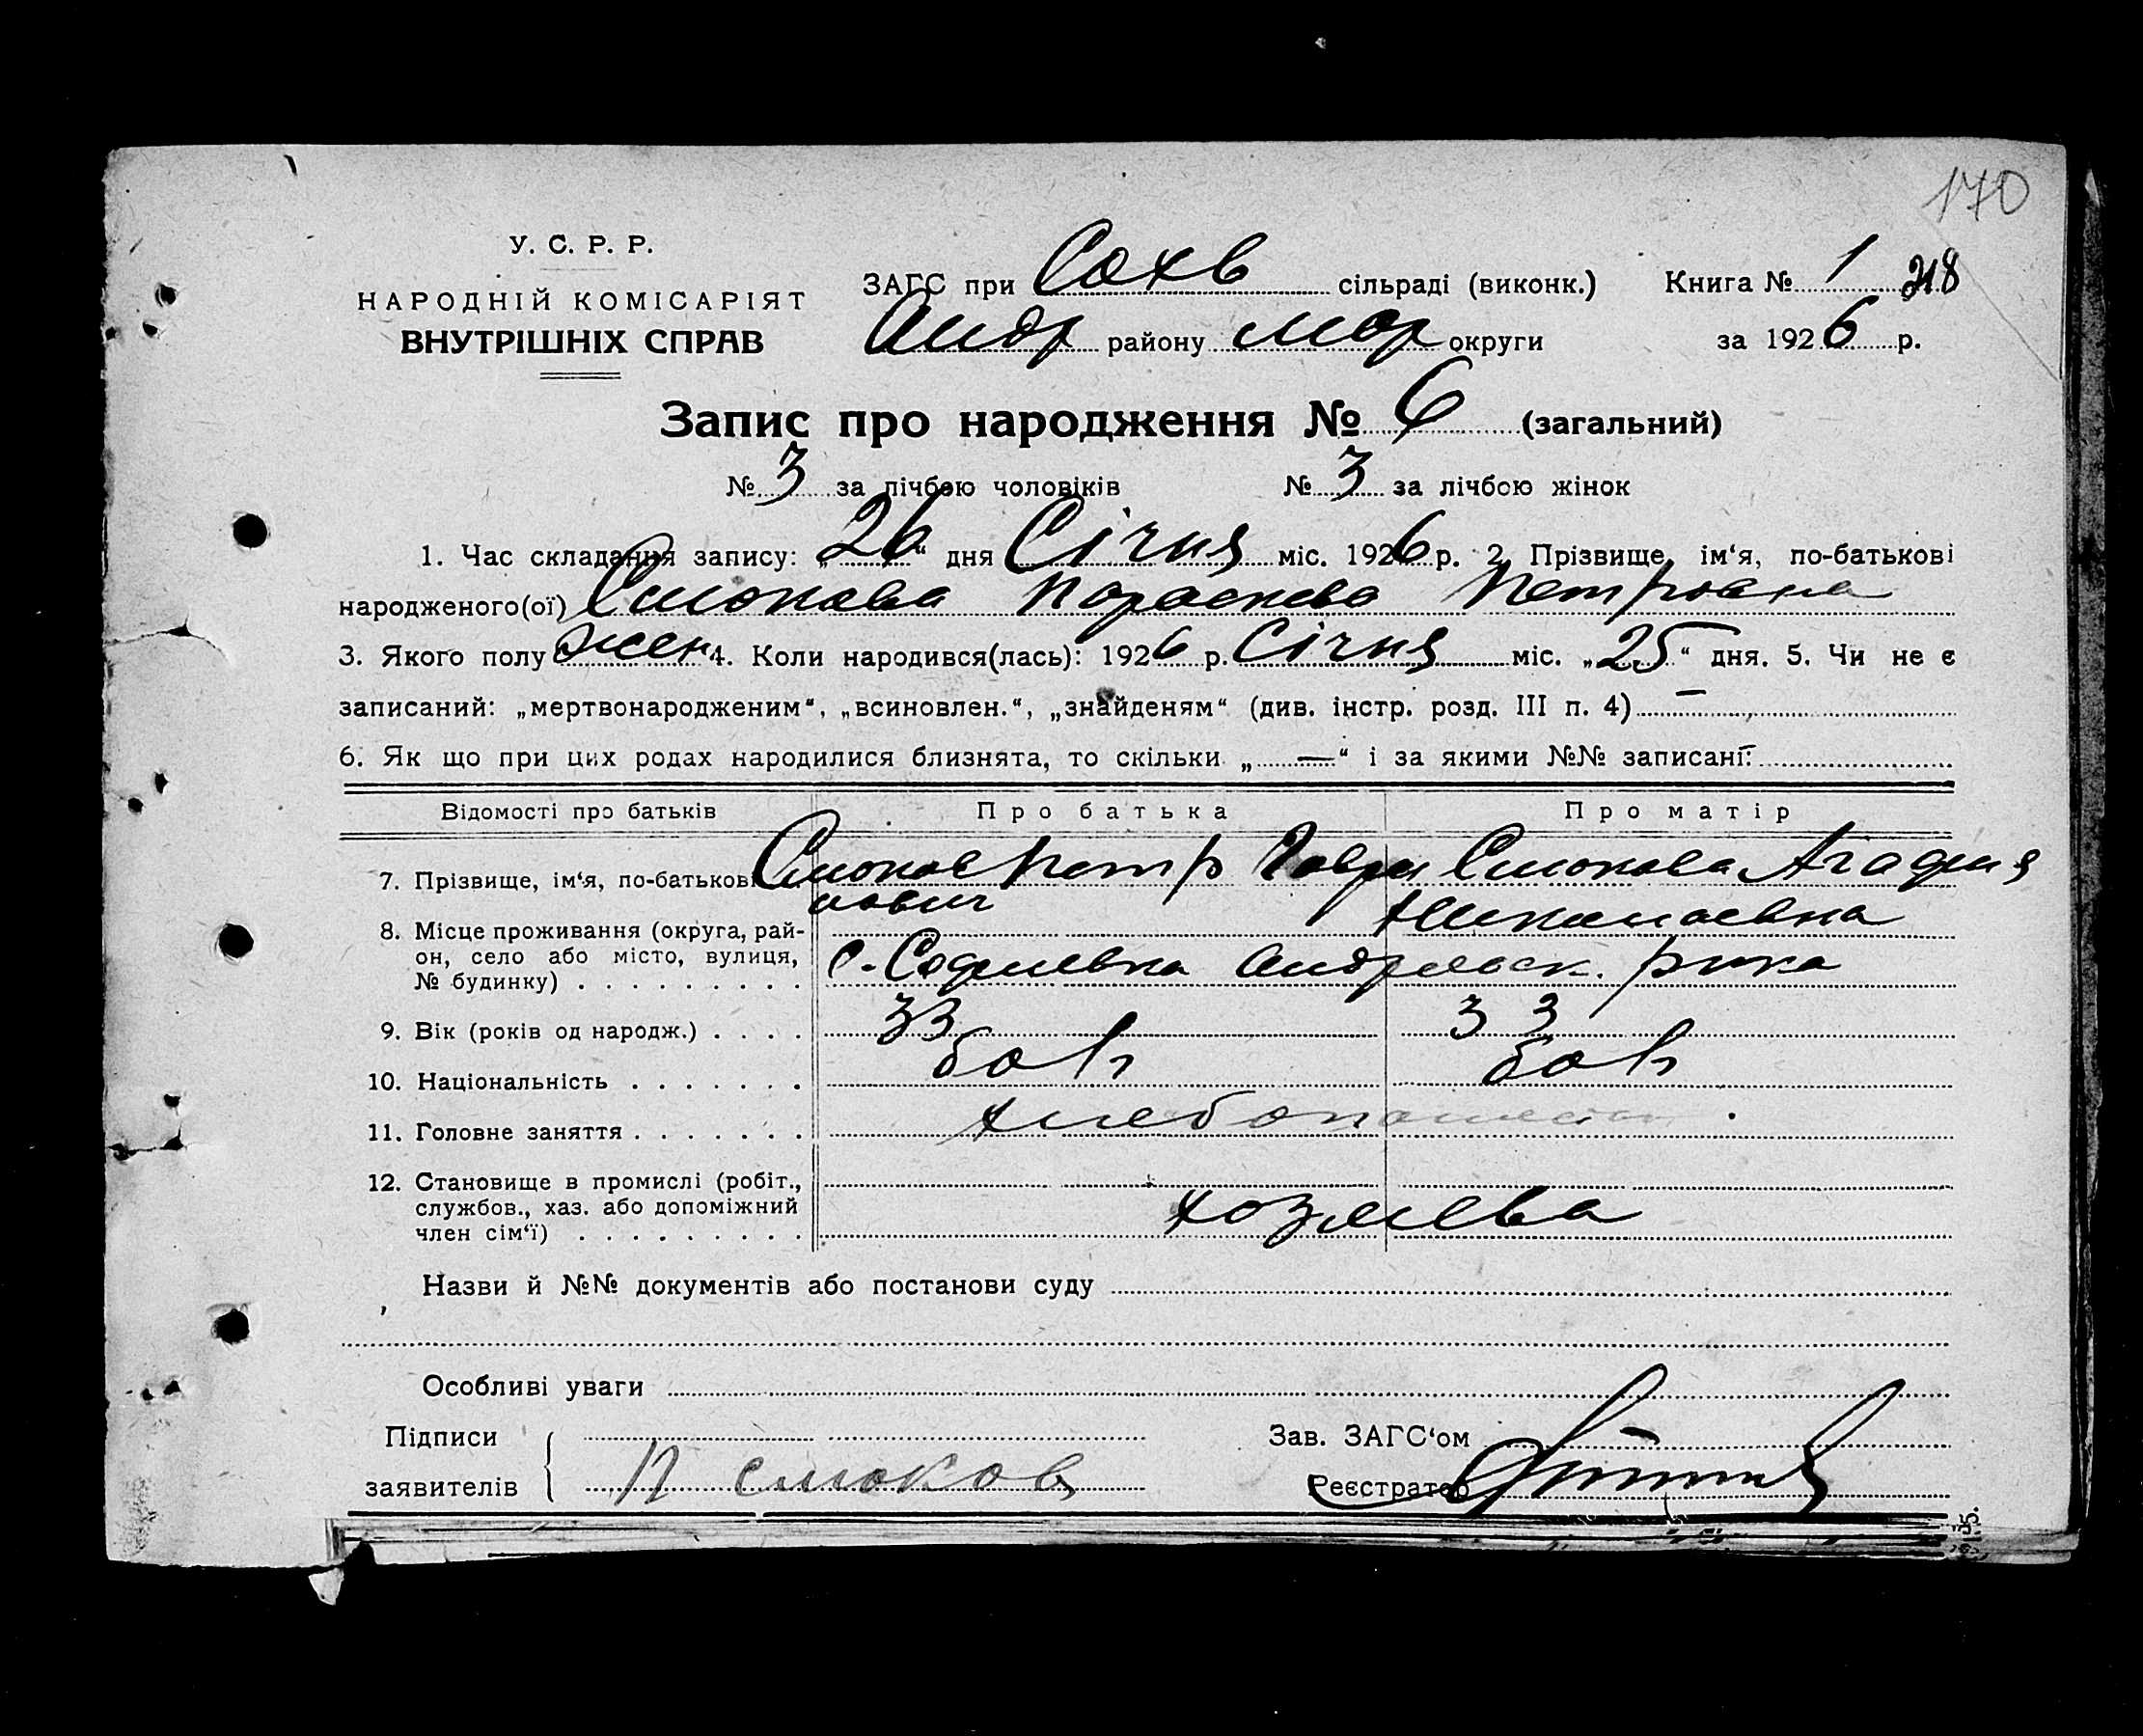 170
У. С. Р. Р.
НАРОДНІЙ КОМІСАРІЯТ
ВНУТРІШНІХ СПРАВ
ЗАГС при Сохв сільраді (виконк.) Книга № 1 218
Андр району Мар округи за 1926 р.
Запис про народження № 6 (загальний)
№ 3 за лічбою чоловіків № 3 за лічбою жінок
1. Час складання запису: „26“ дня Січня міс. 1926 р. 2. Прізвище, ім‘я, по-батькові
народженого(ої) Смокова Параскева Петровна
3. Якого полу жен 4. Коли народився(лась): 1926 р. Січня міс. „25“ дня. 5. Чи не є
записаний: „мертвонародженим“, „всиновлен.“, „знайденям“ (див. інстр. розд. III п. 4) —
6. Як що при цих родах народилися близнята, то скільки „—“ і за якими №№ записані: —
Відомості про батьків Про батька Про матір
7. Прізвище, ім‘я, по-батькові Смоков Петр Гаври Смокова Агафия
лович Николаевна
8. Місце проживання (округа, рай-
он, село або місто, вулиця,
№ будинку) с. Софиевка Андреевск. рика
9. Вік (років од народж.) 33 33
10. Національність болг болг
11. Головне заняття хлебопашество
12. Становище в промислі (робіт.,
службов., хаз. або допоміжний
член сім‘ї) хозяева
Назви й №№ документів або постанови суду
Особливі уваги
Підписи
заявителів П Смоков
Зав. ЗАГС‘ом
Реєстратор